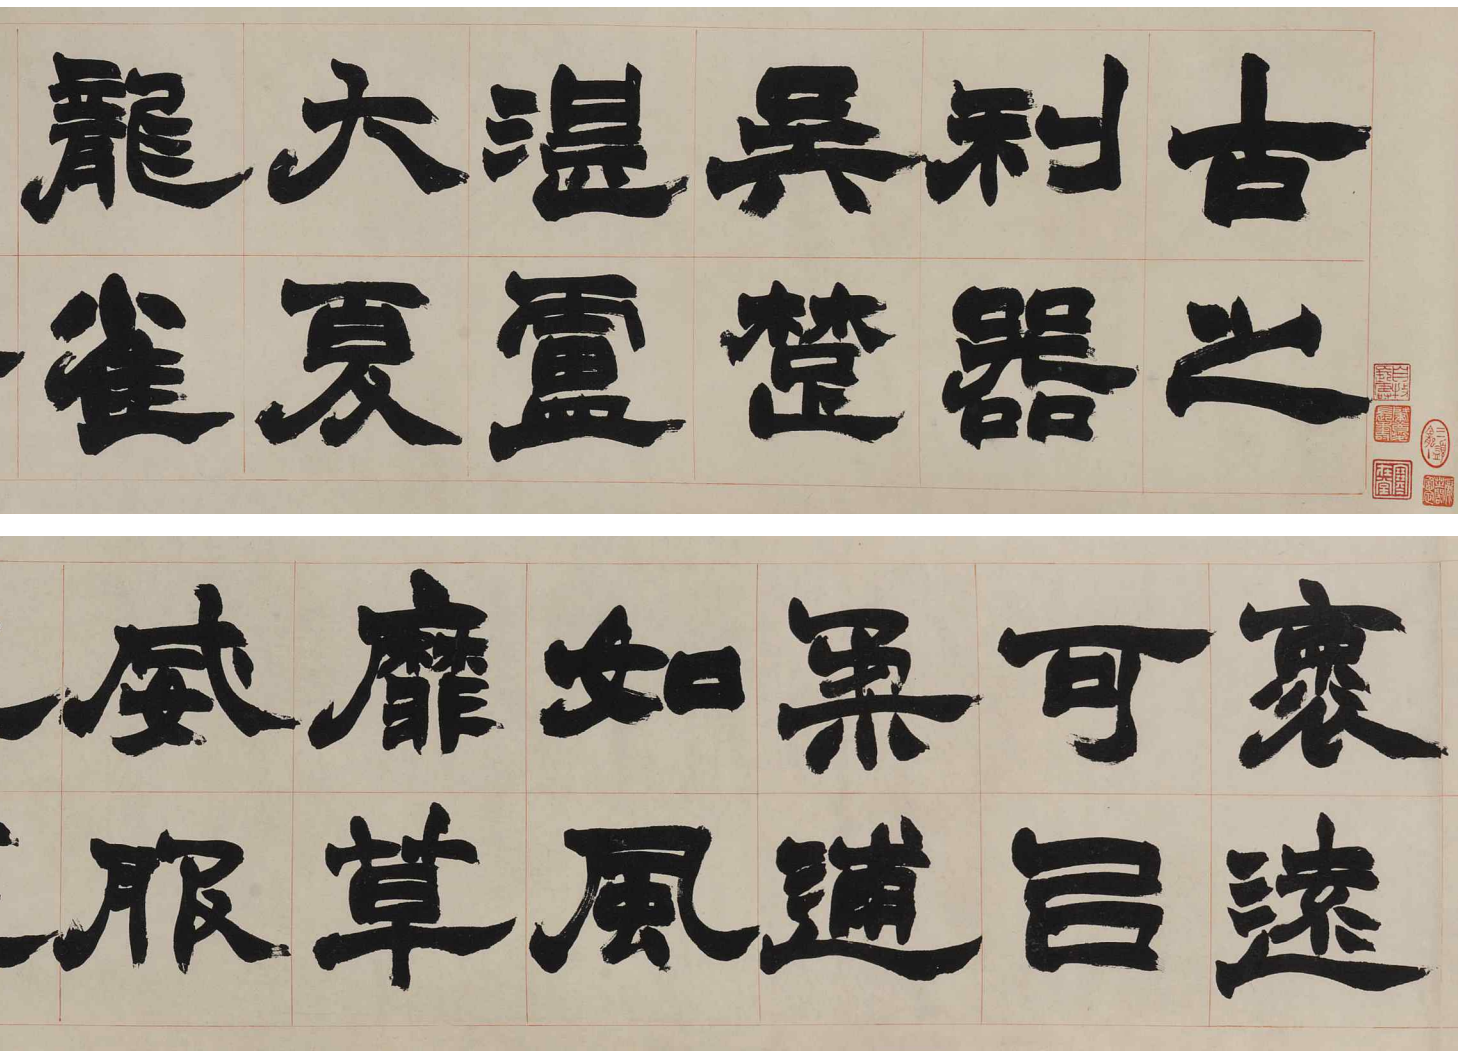 古之
利器
吳楚
湛盧
大夏
龍雀
褱遠
可㠯
柔逋
如風
靡草
威服